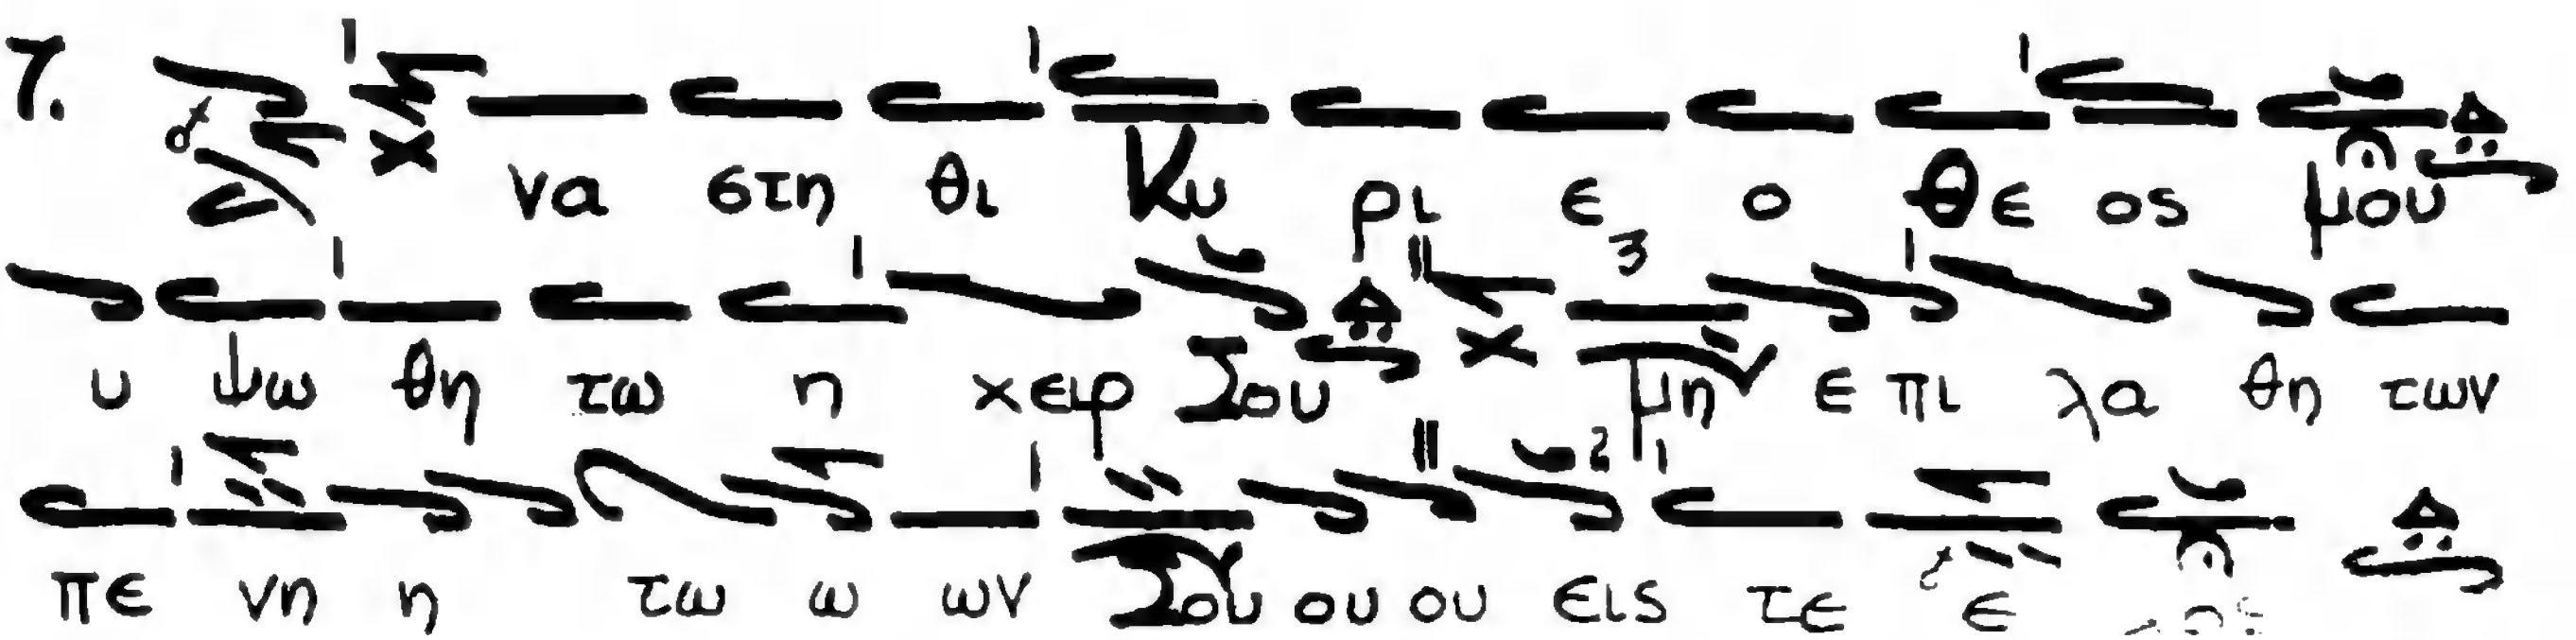 7. να στη θι Κυ ρι ε ο Θε ος μου
υ ψω θη τω η χειρ Σου μη ε πι λα θη των
πε νη η τω ω ων Σου ου ου εις τε ε